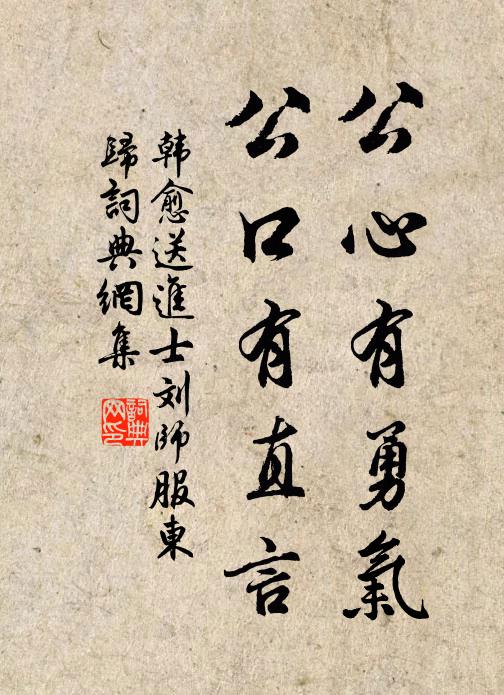 公心有勇氣
公口有直言
韩愈送進士刘師服東
歸詞典網集
詞典网印